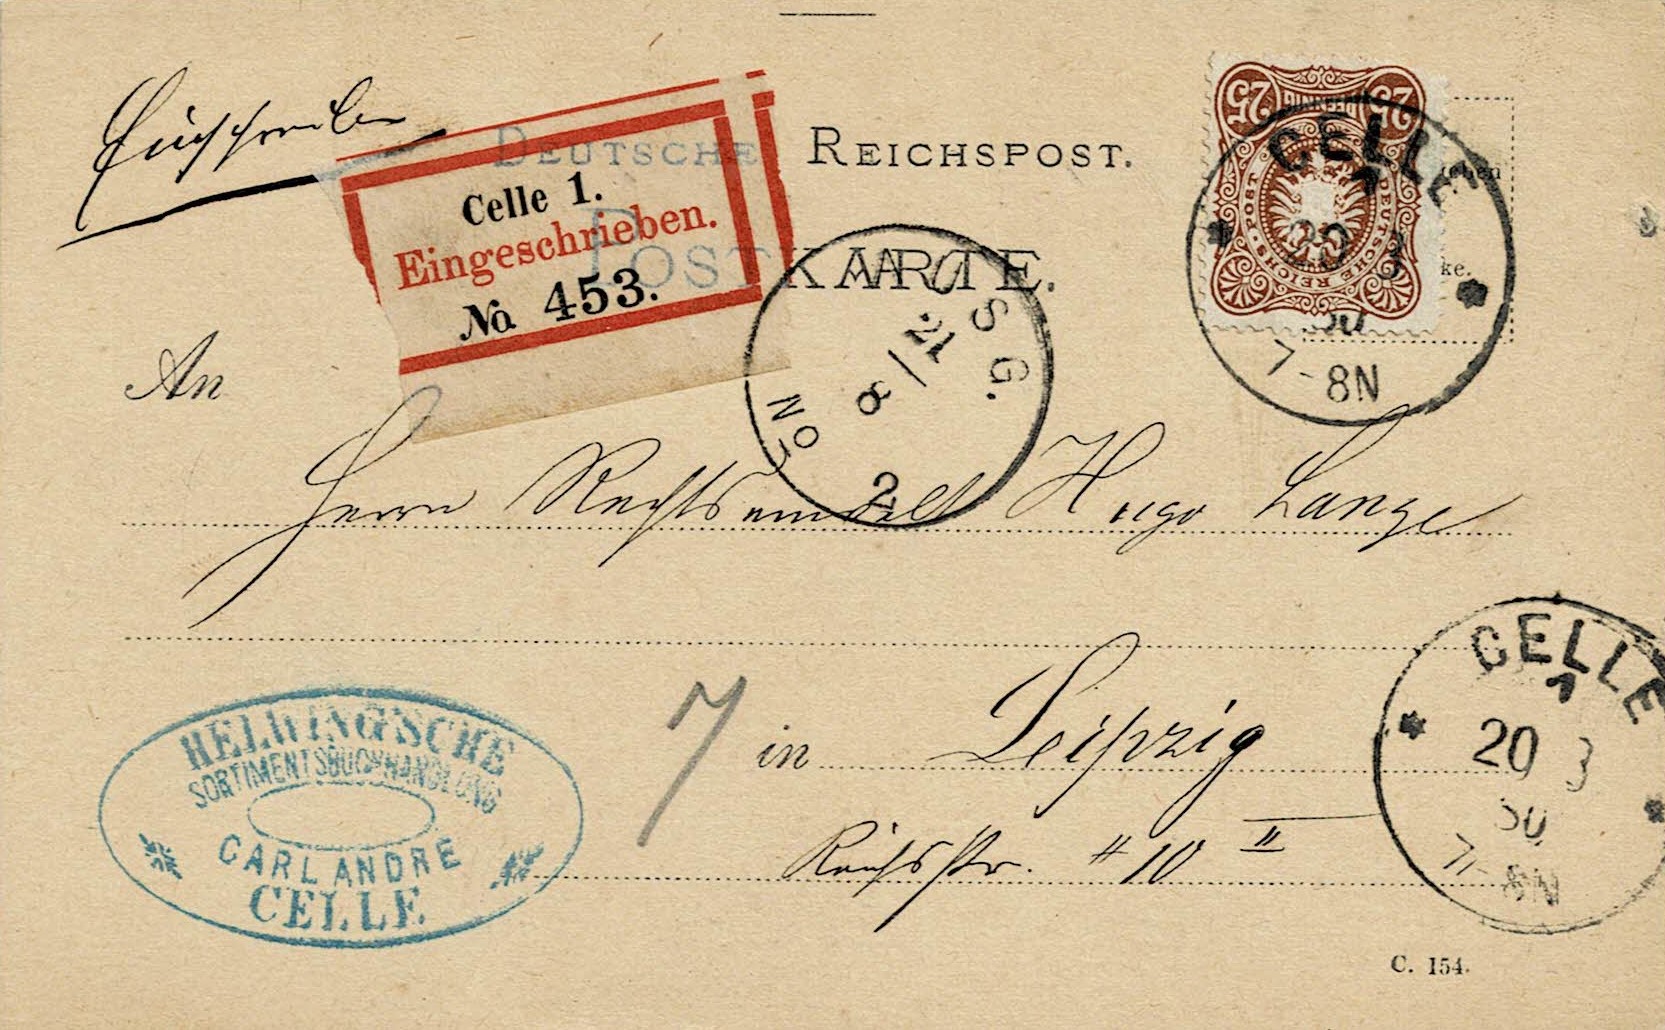 Einschreiben
DEUTSCHE REICHSPOST.
POSTKARTE.
Celle 1.
Eingeschrieben.
No 453.
25 PFENNIG 25
DEUTSCHE REICHS-POST
CELLE
1
20 3
80
7-8N
ke.
AUSG.
21/3
8
No 2
An
Herrn Rechtsanwalt Hugo Lange
7
in Leipzig
Reichsstr. # 10 II
HELWING'SCHE
SORTIMENTSBUCHHANDLUNG
CARL ANDRE
CELLE
CELLE
1
20 3
80
7-8N
C. 154.